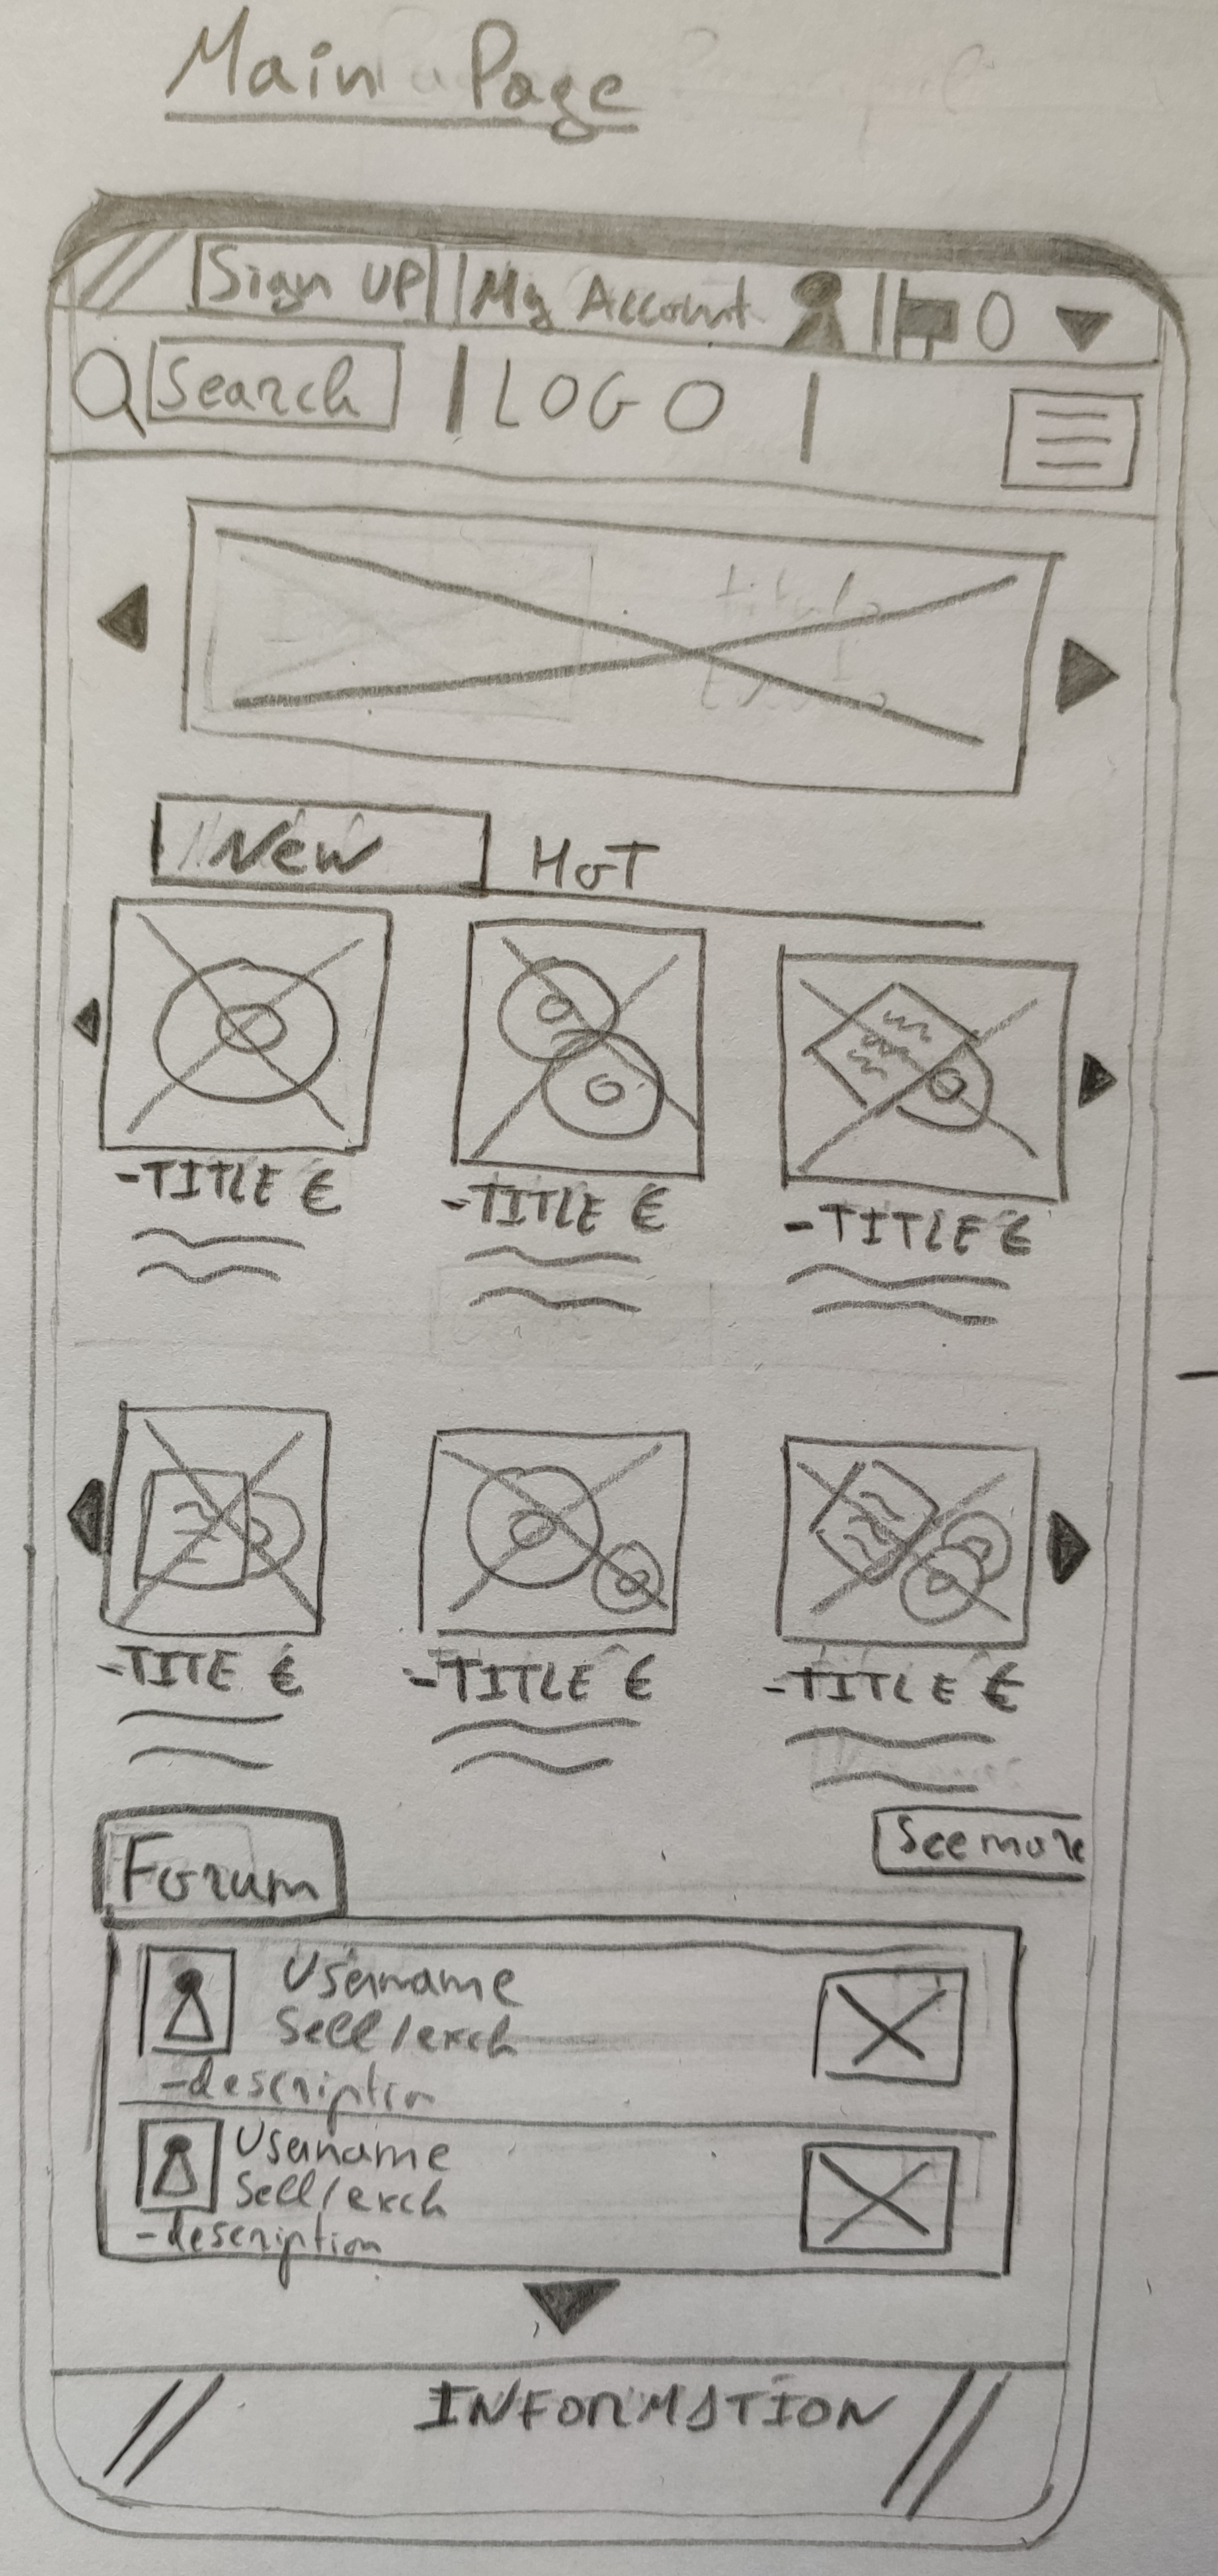 Main Page
Sign UP My Account 0
Search LOGO
New HOT
-TITLE €
-TITLE €
-TITLE €
-TITE €
-TITLE €
-TITLE €
See more
Forum
Username
Sell/exch
-description
Username
Sell/exch
-description
INFORMATION